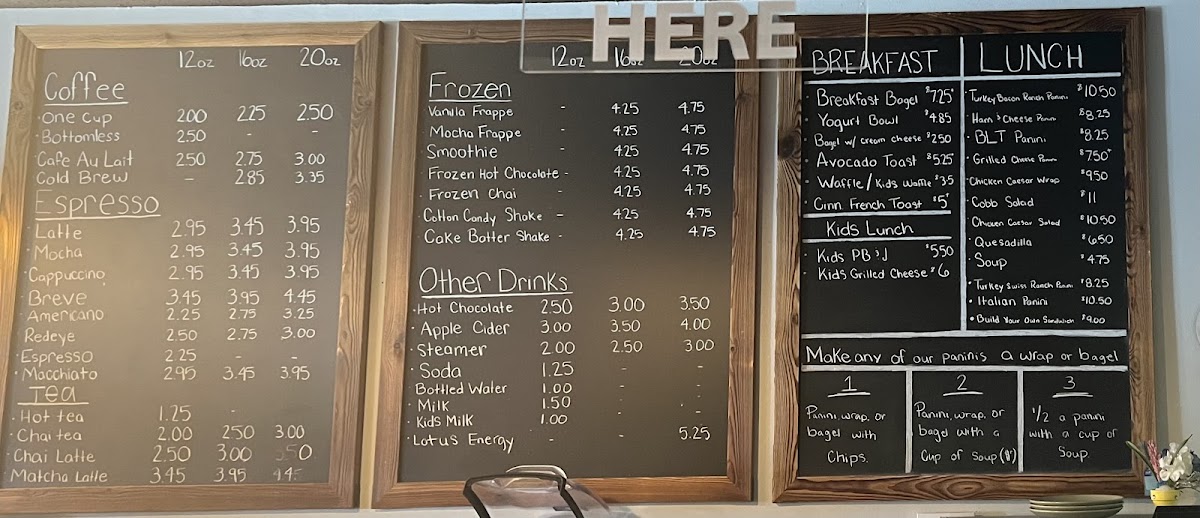 HERE
12oz 16oz 20oz
Coffee
One Cup 2.00 2.25 2.50
Bottomless 2.50 - -
Cafe Au Lait 2.50 2.75 3.00
Cold Brew - 2.85 3.35
Espresso
Latte 2.95 3.45 3.95
Mocha 2.95 3.45 3.95
Cappuccino 2.95 3.45 3.95
Breve 3.45 3.95 4.45
Americano 2.25 2.75 3.25
Redeye 2.50 2.75 3.00
Espresso 2.25 - -
Macchiato 2.95 3.45 3.95
Tea
Hot tea 1.25 - -
Chai tea 2.00 2.50 3.00
Chai Latte 2.50 3.00 3.50
Matcha Latte 3.45 3.95 4.45
12oz 16oz 20oz
Frozen
Vanilla Frappe - 4.25 4.75
Mocha Frappe - 4.25 4.75
Smoothie - 4.25 4.75
Frozen Hot Chocolate - 4.25 4.75
Frozen Chai - 4.25 4.75
Cotton Candy Shake - 4.25 4.75
Cake Batter Shake - 4.25 4.75
Other Drinks
Hot Chocolate 2.50 3.00 3.50
Apple Cider 3.00 3.50 4.00
Steamer 2.00 2.50 3.00
Soda 1.25 - -
Bottled Water 1.00 - -
Milk 1.50 - -
Kids Milk 1.00 - -
Lotus Energy - - 5.25
BREAKFAST
Breakfast Bagel $7.25+
Yogurt Bowl $4.85
Bagel w/ cream cheese $2.50
Avocado Toast $5.25+
Waffle / Kids Waffle $3.5
Cinn French Toast $5+
Kids Lunch
Kids PB & J $5.50
Kids Grilled Cheese $6
LUNCH
Turkey Bacon Ranch Panini $10.50
Ham & Cheese Panini $8.25
BLT Panini $8.25
Grilled Cheese Panini $7.50+
Chicken Caesar Wrap $9.50
Cobb Salad $11
Chicken Caesar Salad $10.50
Quesadilla $6.50
Soup $4.75
Turkey Swiss Ranch Panini $8.25
Italian Panini $10.50
Build Your Own Sandwich $9.00
Make any of our paninis a wrap or bagel
1
Panini, wrap, or
bagel with
Chips.
2
Panini, wrap, or
bagel with a
Cup of Soup ($1)
3
1/2 a panini
with a cup of
Soup.